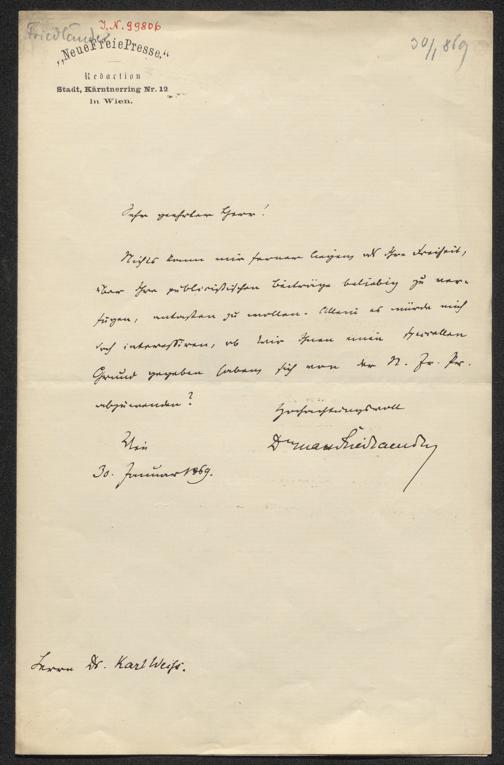 Friedländer
I. N. 99806
30/1 869
„Neue Freie Presse."
Redaction
Stadt, Kärntnerring Nr. 12
in Wien.
Sehr geehrter Herr!
Nichts kann mir ferner liegen als Ihre Freiheit,
über Ihre publicistischen Beiträge beliebig zu ver-
fügen, antasten zu wollen. Allein es würde mich
doch interessiren, ob wir Ihnen einen speciellen
Grund gegeben haben, sich von der N. Fr. Pr.
abzuwenden?
Hochachtungsvoll
Dr Max Friedlaender
Wien
30. Januar 1869.
Herrn Dr. Karl Weiß.